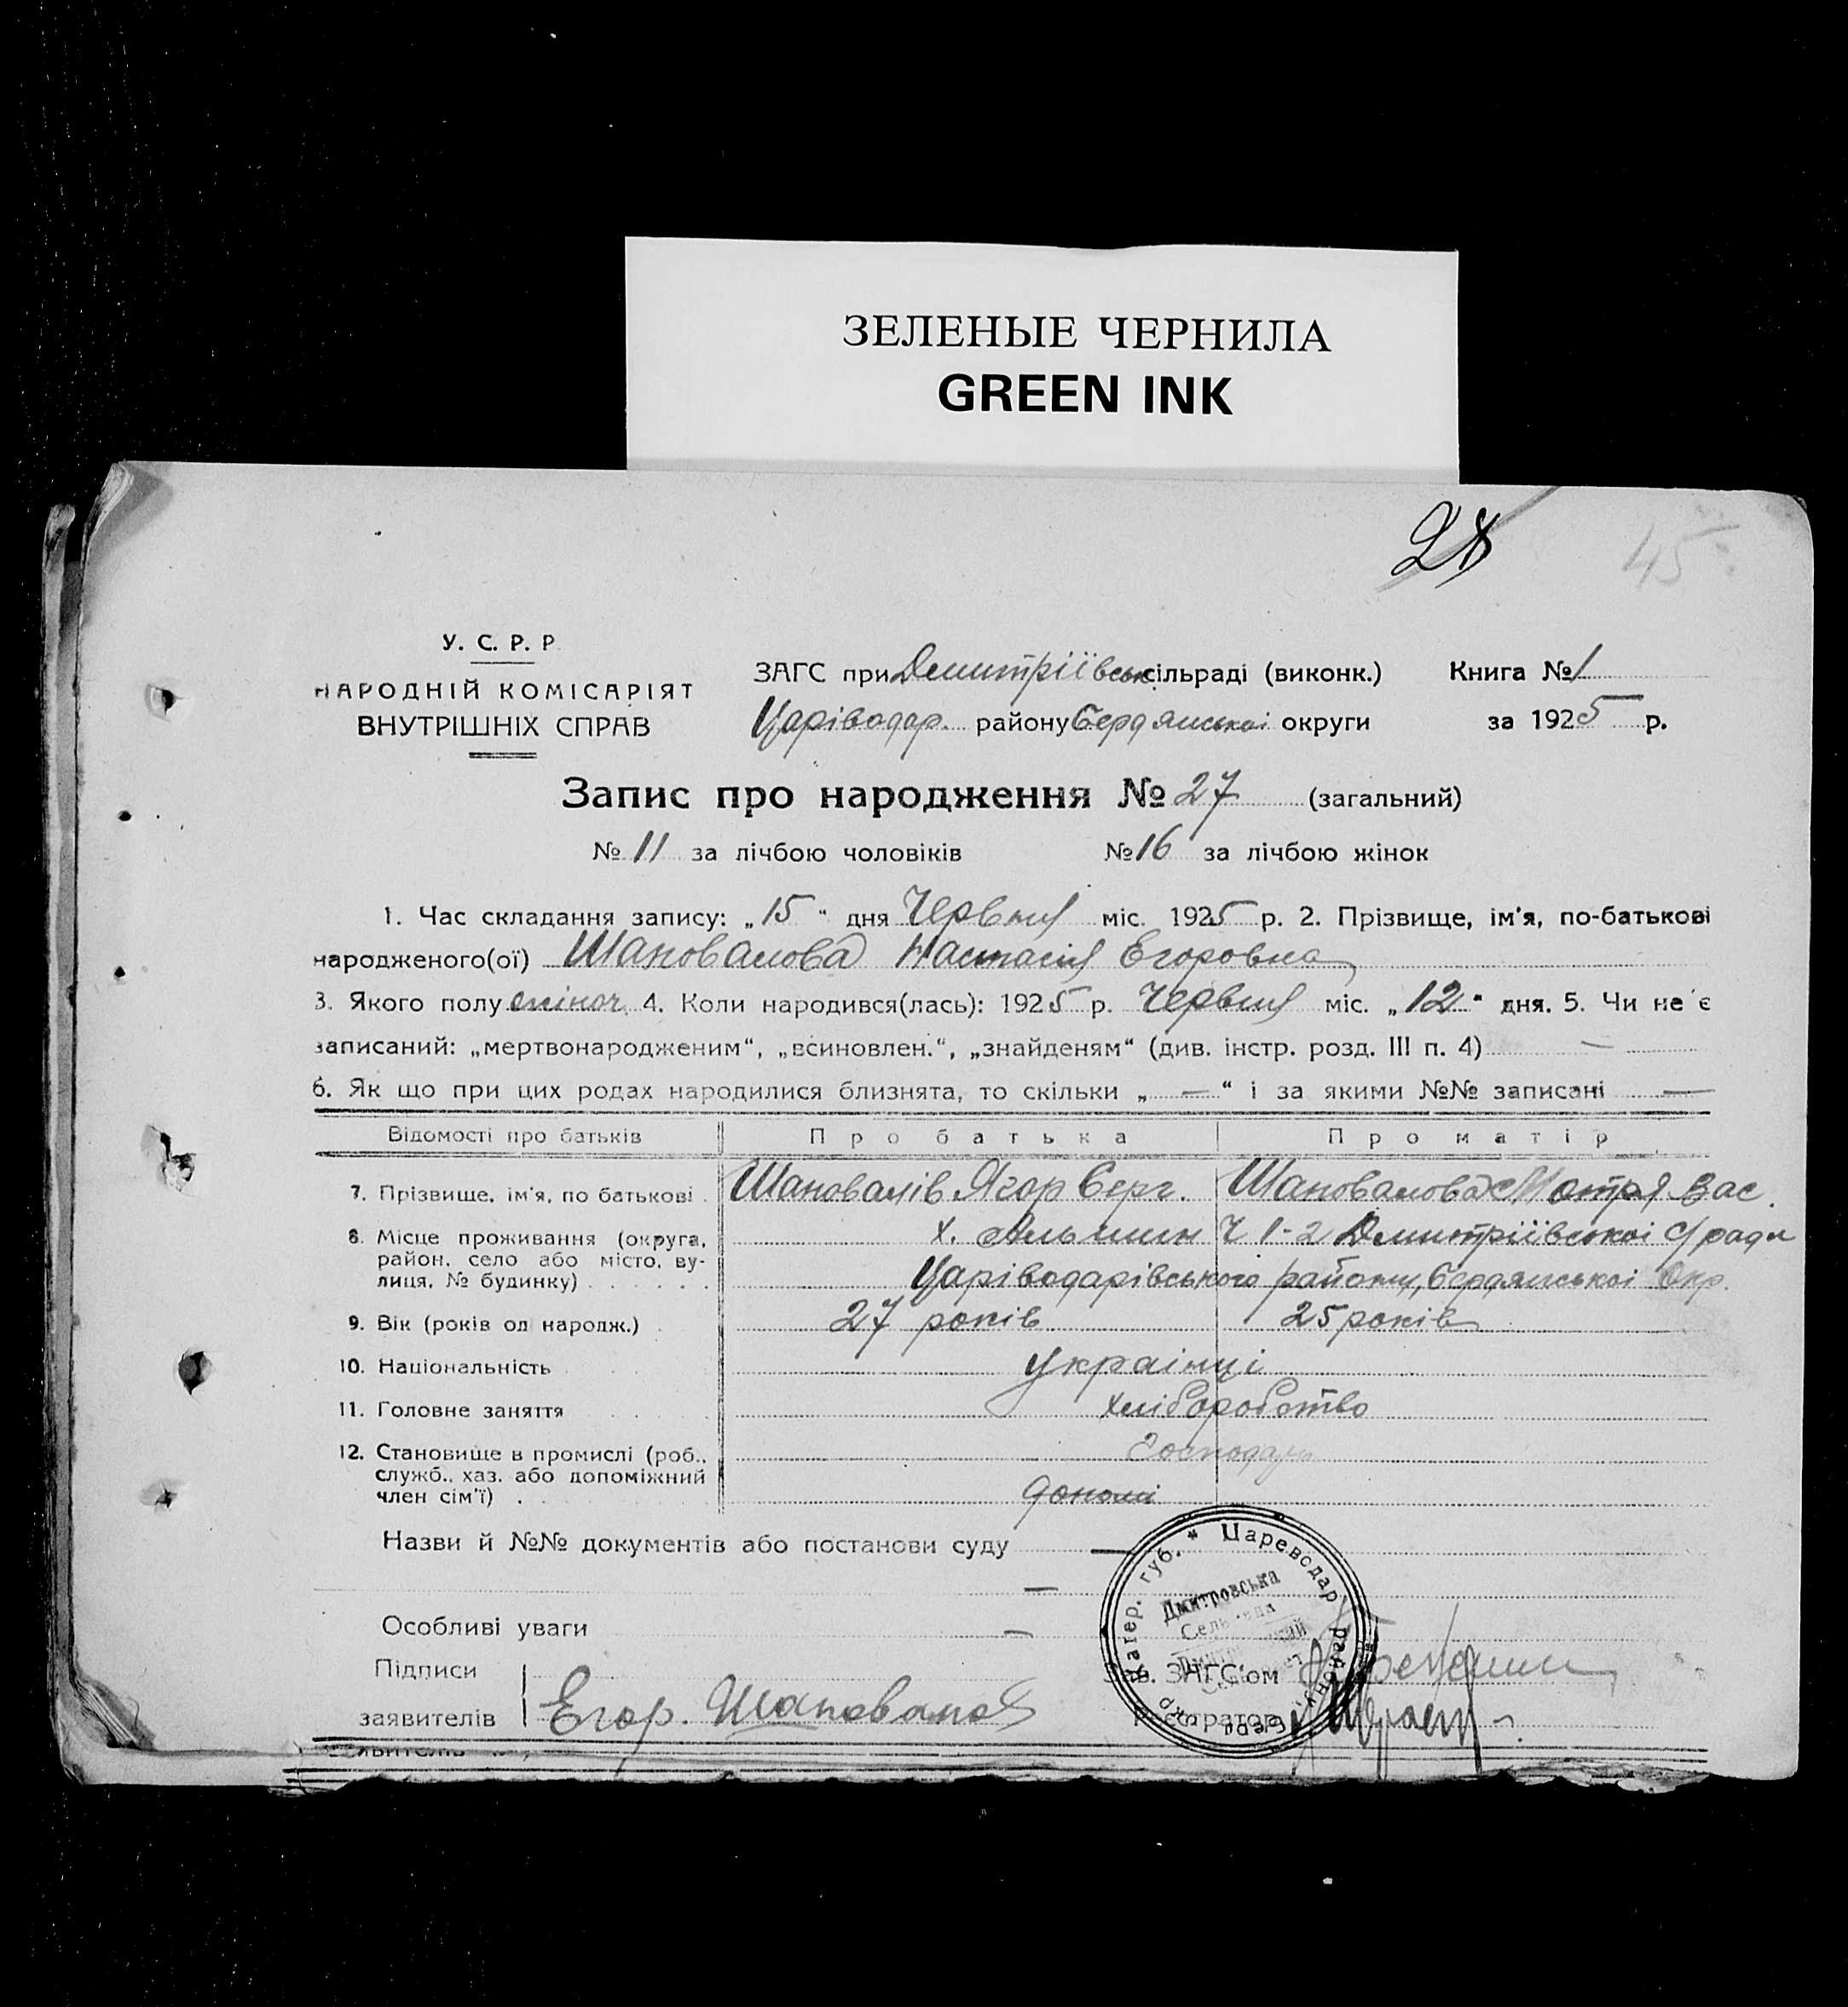 ЗЕЛЕНЫЕ ЧЕРНИЛА
GREEN INK
45
У. С. Р. Р
НАРОДНІЙ КОМІСАРІЯТ
ВНУТРІШНІХ СПРАВ
ЗАГС при Дмитріївськ. сільраді (виконк.) Книга № 1
Царіводар. району Бердянськоі округи за 1925 р.
Запис про народження № 27 (загальний)
№ 11 за лічбою чоловіків № 16 за лічбою жінок
1. Час складання запису: „15“ дня Червня міс. 1925 р. 2. Прізвище, ім'я, по-батькові
народженого(ої) Шаповалова Настасія Егоровна
3. Якого полу жіноч. 4. Коли народився(лась): 1925 р. Червня міс. „12“ дня. 5. Чи не є
записаний: „мертвонародженим“, „всиновлен.“, „знайденям“ (див. інстр. розд. III п. 4) —
6. Як що при цих родах народилися близнята, то скільки „ — “ і за якими №№ записані —
Відомості про батьків Про батька Про матір
7. Прізвище, ім'я, по батькові Шаповалів Ягор Серг. Шаповалова Мотря Вас.
8. Місце проживання (округа, район, село або місто, вулиця, № будинку) х. Ч 1-2 Дмитріївськоі с/ради
Царіводарівського району, Бердянськоі Окр.
9. Вік (років од народж.) 27 років 25 років
10. Національність Украінці
11. Головне заняття хліборобство
12. Становище в промислі (роб., служб., хаз. або допоміжний член сім'ї) Господарь
Назви й №№ документів або постанови суду —
—
Особливі уваги —
Підписи
заявителів Егор. Шаповалов
Зав. ЗАГС'ом
Реєстратор
Катер. губ. * Цареводар. району, Бердян. окр.
Дмитровська